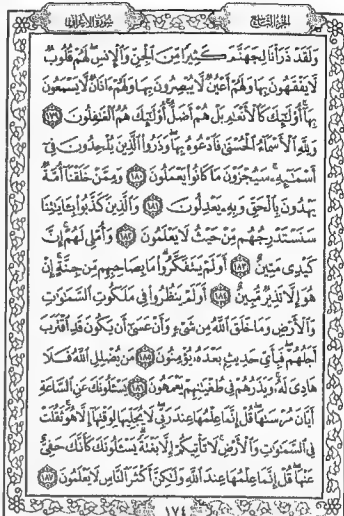 الجزء التاسع
سورة الأعراف
وَلَقَدْ ذَرَأْنَا لِجَهَنَّمَ كَثِيرًا مِّنَ ٱلْجِنِّ وَٱلْإِنسِ لَهُمْ قُلُوبٌ
لَّا يَفْقَهُونَ بِهَا وَلَهُمْ أَعْيُنٌ لَّا يُبْصِرُونَ بِهَا وَلَهُمْ ءَاذَانٌ لَّا يَسْمَعُونَ
بِهَآ أُو۟لَٰٓئِكَ كَٱلْأَنْعَٰمِ بَلْ هُمْ أَضَلُّ أُو۟لَٰٓئِكَ هُمُ ٱلْغَٰفِلُونَ ١٧٩
وَلِلَّهِ ٱلْأَسْمَآءُ ٱلْحُسْنَىٰ فَٱدْعُوهُ بِهَا وَذَرُوا۟ ٱلَّذِينَ يُلْحِدُونَ فِىٓ
أَسْمَٰٓئِهِۦ سَيُجْزَوْنَ مَا كَانُوا۟ يَعْمَلُونَ ١٨٠ وَمِمَّنْ خَلَقْنَآ أُمَّةٌ
يَهْدُونَ بِٱلْحَقِّ وَبِهِۦ يَعْدِلُونَ ١٨١ وَٱلَّذِينَ كَذَّبُوا۟ بِـَٔايَٰتِنَا
سَنَسْتَدْرِجُهُم مِّنْ حَيْثُ لَا يَعْلَمُونَ ١٨٢ وَأُمْلِى لَهُمْ إِنَّ
كَيْدِى مَتِينٌ ١٨٣ أَوَلَمْ يَتَفَكَّرُوا۟ مَا بِصَاحِبِهِم مِّن جِنَّةٍ إِنْ
هُوَ إِلَّا نَذِيرٌ مُّبِينٌ ١٨٤ أَوَلَمْ يَنظُرُوا۟ فِى مَلَكُوتِ ٱلسَّمَٰوَٰتِ
وَٱلْأَرْضِ وَمَا خَلَقَ ٱللَّهُ مِن شَىْءٍ وَأَنْ عَسَىٰٓ أَن يَكُونَ قَدِ ٱقْتَرَبَ
أَجَلُهُمْ فَبِأَىِّ حَدِيثٍ بَعْدَهُۥ يُؤْمِنُونَ ١٨٥ مَن يُضْلِلِ ٱللَّهُ فَلَا
هَادِىَ لَهُۥ وَيَذَرُهُمْ فِى طُغْيَٰنِهِمْ يَعْمَهُونَ ١٨٦ يَسْـَٔلُونَكَ عَنِ ٱلسَّاعَةِ
أَيَّانَ مُرْسَىٰهَا قُلْ إِنَّمَا عِلْمُهَا عِندَ رَبِّى لَا يُجَلِّيهَا لِوَقْتِهَآ إِلَّا هُوَ ثَقُلَتْ
فِى ٱلسَّمَٰوَٰتِ وَٱلْأَرْضِ لَا تَأْتِيكُمْ إِلَّا بَغْتَةً يَسْـَٔلُونَكَ كَأَنَّكَ حَفِىٌّ
عَنْهَا قُلْ إِنَّمَا عِلْمُهَا عِندَ ٱللَّهِ وَلَٰكِنَّ أَكْثَرَ ٱلنَّاسِ لَا يَعْلَمُونَ ١٨٧
١٧٤